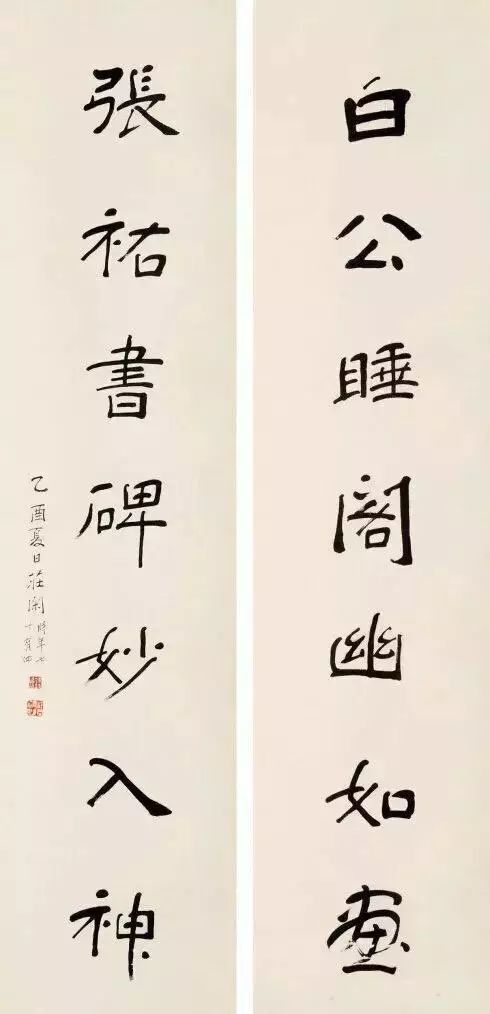 白公睡阁幽如画
張祜書碑妙入神
乙酉夏日莊閑時年七十有四